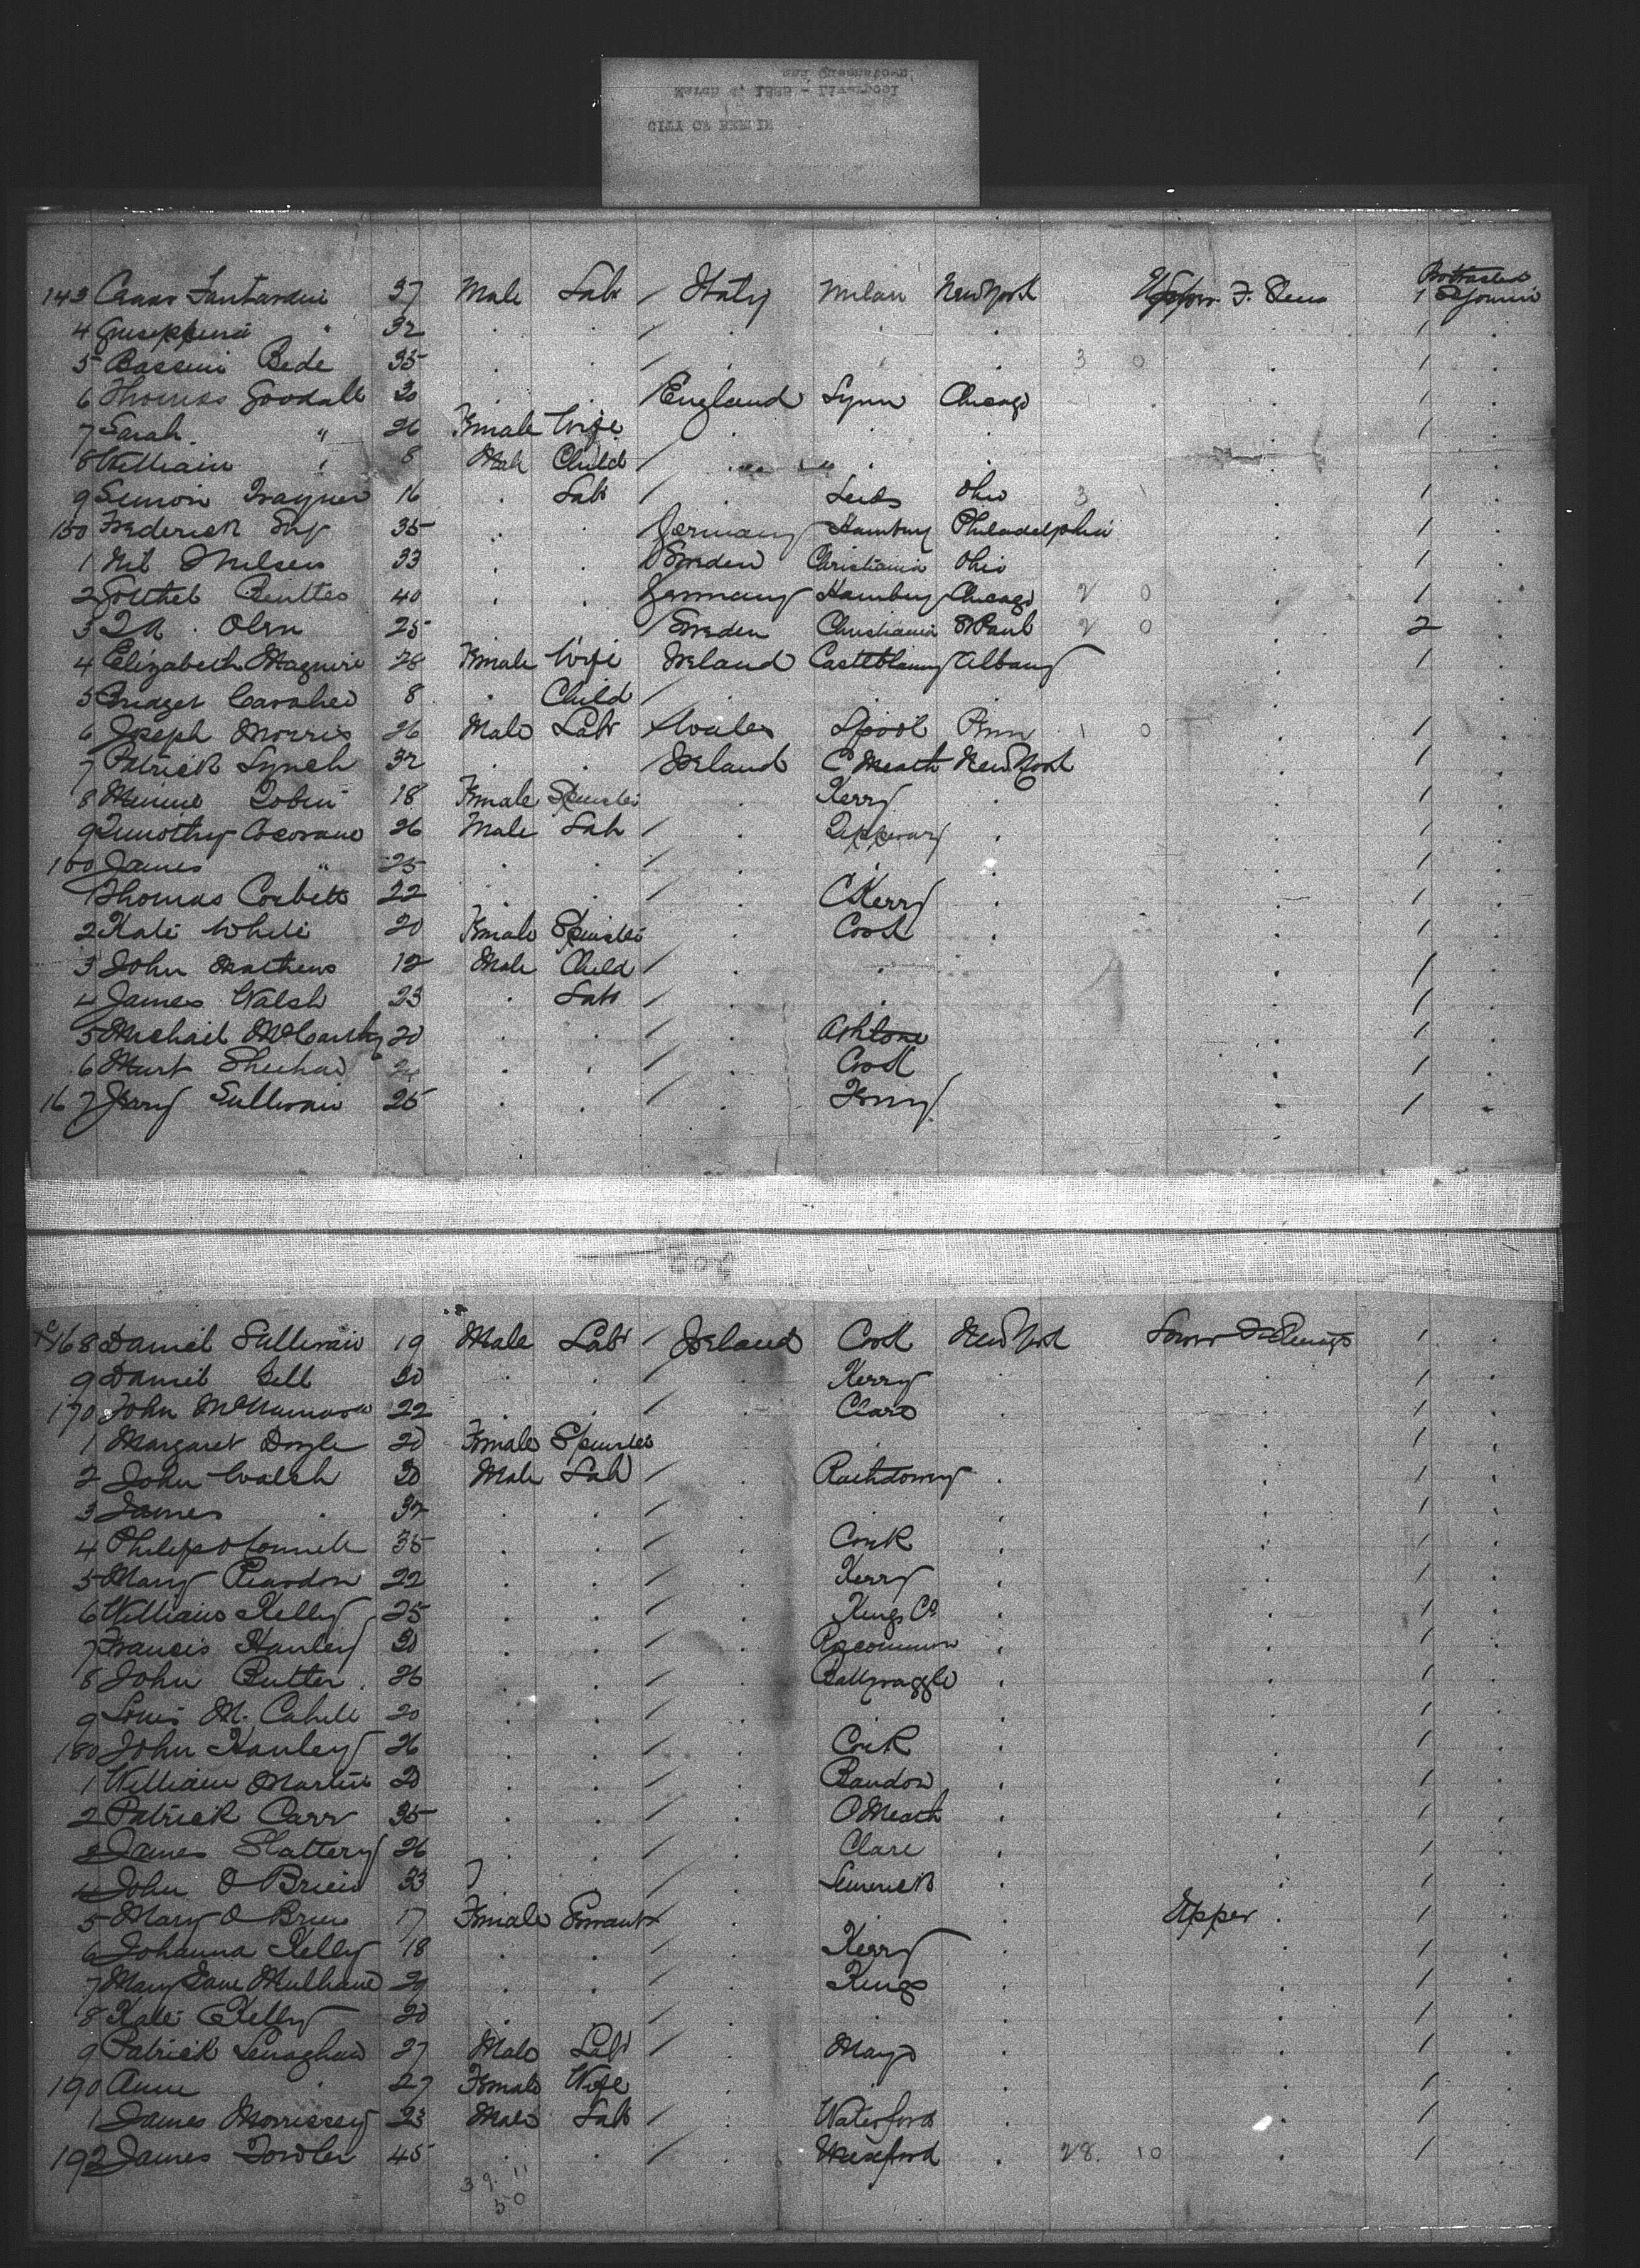 CITY OF BERLIN
March 2, 1888 - Liverpool
and Queenstown
Protracted
143 37 Male Lab / Italy Milan New York Upper F. Steer 1 Sejourn
4 Guseppena " 32 / 1
5 Basseni Bede 35 / 3 0 1
6 Thomas Goodall 30 / England Lynn Chicago 1
7 Sarah " 26 Female Wife 1
8 William " 8 Male Child /
9 Simon Traynor 16 Lab / Leeds Ohio 3 1
150 Frederick 35 Germany Hamburg Philadelphia 1
1 Nil Nilsen 33 Sweden Christiania Ohio 1
2 Gotthel 40 Germany Hamburg Chicago 2 0 1
3 Olsen 25 / Sweden Christiania St Paul 2 0 2
4 Elizabeth Maguire 28 Female Wife Ireland Castleblaney Albany 1
5 Bridget 8 Child /
6 Joseph Morris 26 Male Lab Wales Lpool Penn 1 0 1
7 Patrick Lynch 32 / Ireland C Meath New York 1
8 Minnie Tobin 18 Female Spinster Kerry 1
9 Timothy Cocorane 26 Male Lab / Tipperary 1
160 James " 25 / 1
1 Thomas Corbett 22 / C Kerry 1
2 Kate White 20 Female Spinster Cork 1
3 John Mathews 12 Male Child / 1
4 James Walsh 23 Lab / 1
5 Michael McCarthy 20 / Athlone 1
6 Murt Sheehan 24 / Cork 1
167 Jerry Sullivan 25 / Kerry 1
168 Daniel Sullivan 19 Male Lab / Ireland Cork New York Lower 1
9 Daniel 30 / Kerry 1
170 John McNamara 22 / Clare 1
1 Margaret Doyle 20 Female Spinster 1
2 John Walsh 30 Male Lab / Rathdowney 1
3 James 32 / 1
4 Philip O'Connell 35 / Cork 1
5 Mary Reardon 22 / Kerry 1
6 William Kelly 25 / Kings Co 1
7 Francis Hanley 30 / Roscommon 1
8 John Butler 26 / Ballyraggle 1
9 Louis M. Cahill 20 / 1
180 John Hanley 26 / Cork 1
1 William Martin 20 / Bandon 1
2 Patrick Carr 35 / C Meath 1
3 James Slattery 26 / Clare 1
4 John O Brien 33 / Limerick 1
5 Mary O Brien 17 Female Servant / Upper 1
6 Johanna Kelly 18 / Kerry 1
7 Mary Jane Mulhane 29 / Kings 1
8 Kate Kelly 20 / 1
9 Patrick Lenaghan 27 Male Lab / Mayo 1
190 Anne 27 Female Wife 1
1 James Morrissey 23 Male Lab / Waterford 1
192 James Fowler 45 / Wexford 28. 10 1
39. 11
50